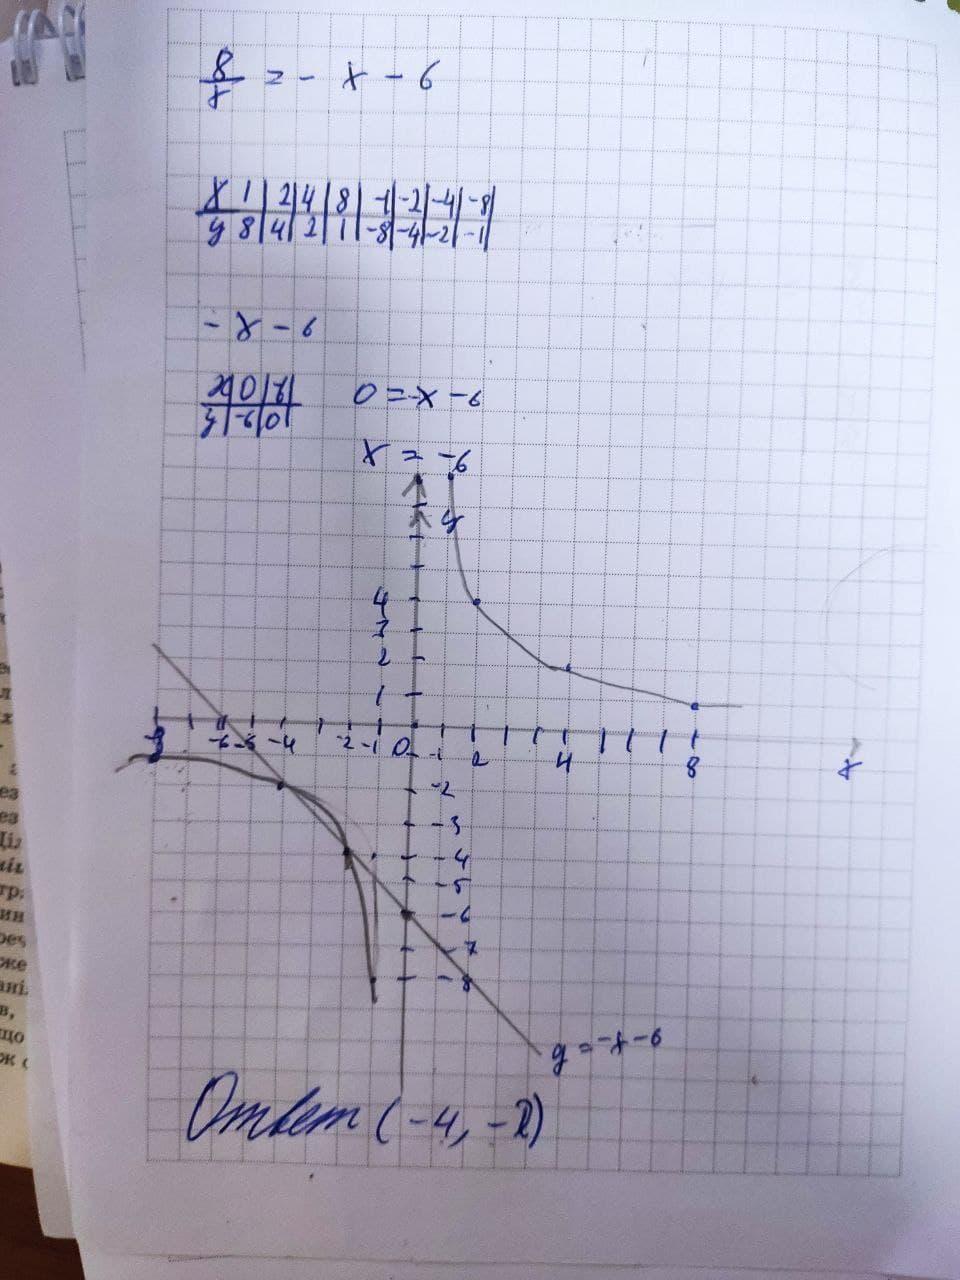 8/x = - x - 6
x 1 | 2 | 4 | 8 | -1 | -2 | -4 | -8 |
y 8 | 4 | 2 | 1 | -8 | -4 | -2 | -1 |
- x - 6
x | 0 | |
y | -6 | 0 |
0 = -x - 6
x = -6
y
4
3
2
1
-6 -5 -4 -2 -1 0 2 4 8 x
-1
-2
-3
-4
-5
-6
-7
-8
y = -x - 6
Ответ (-4, -2)